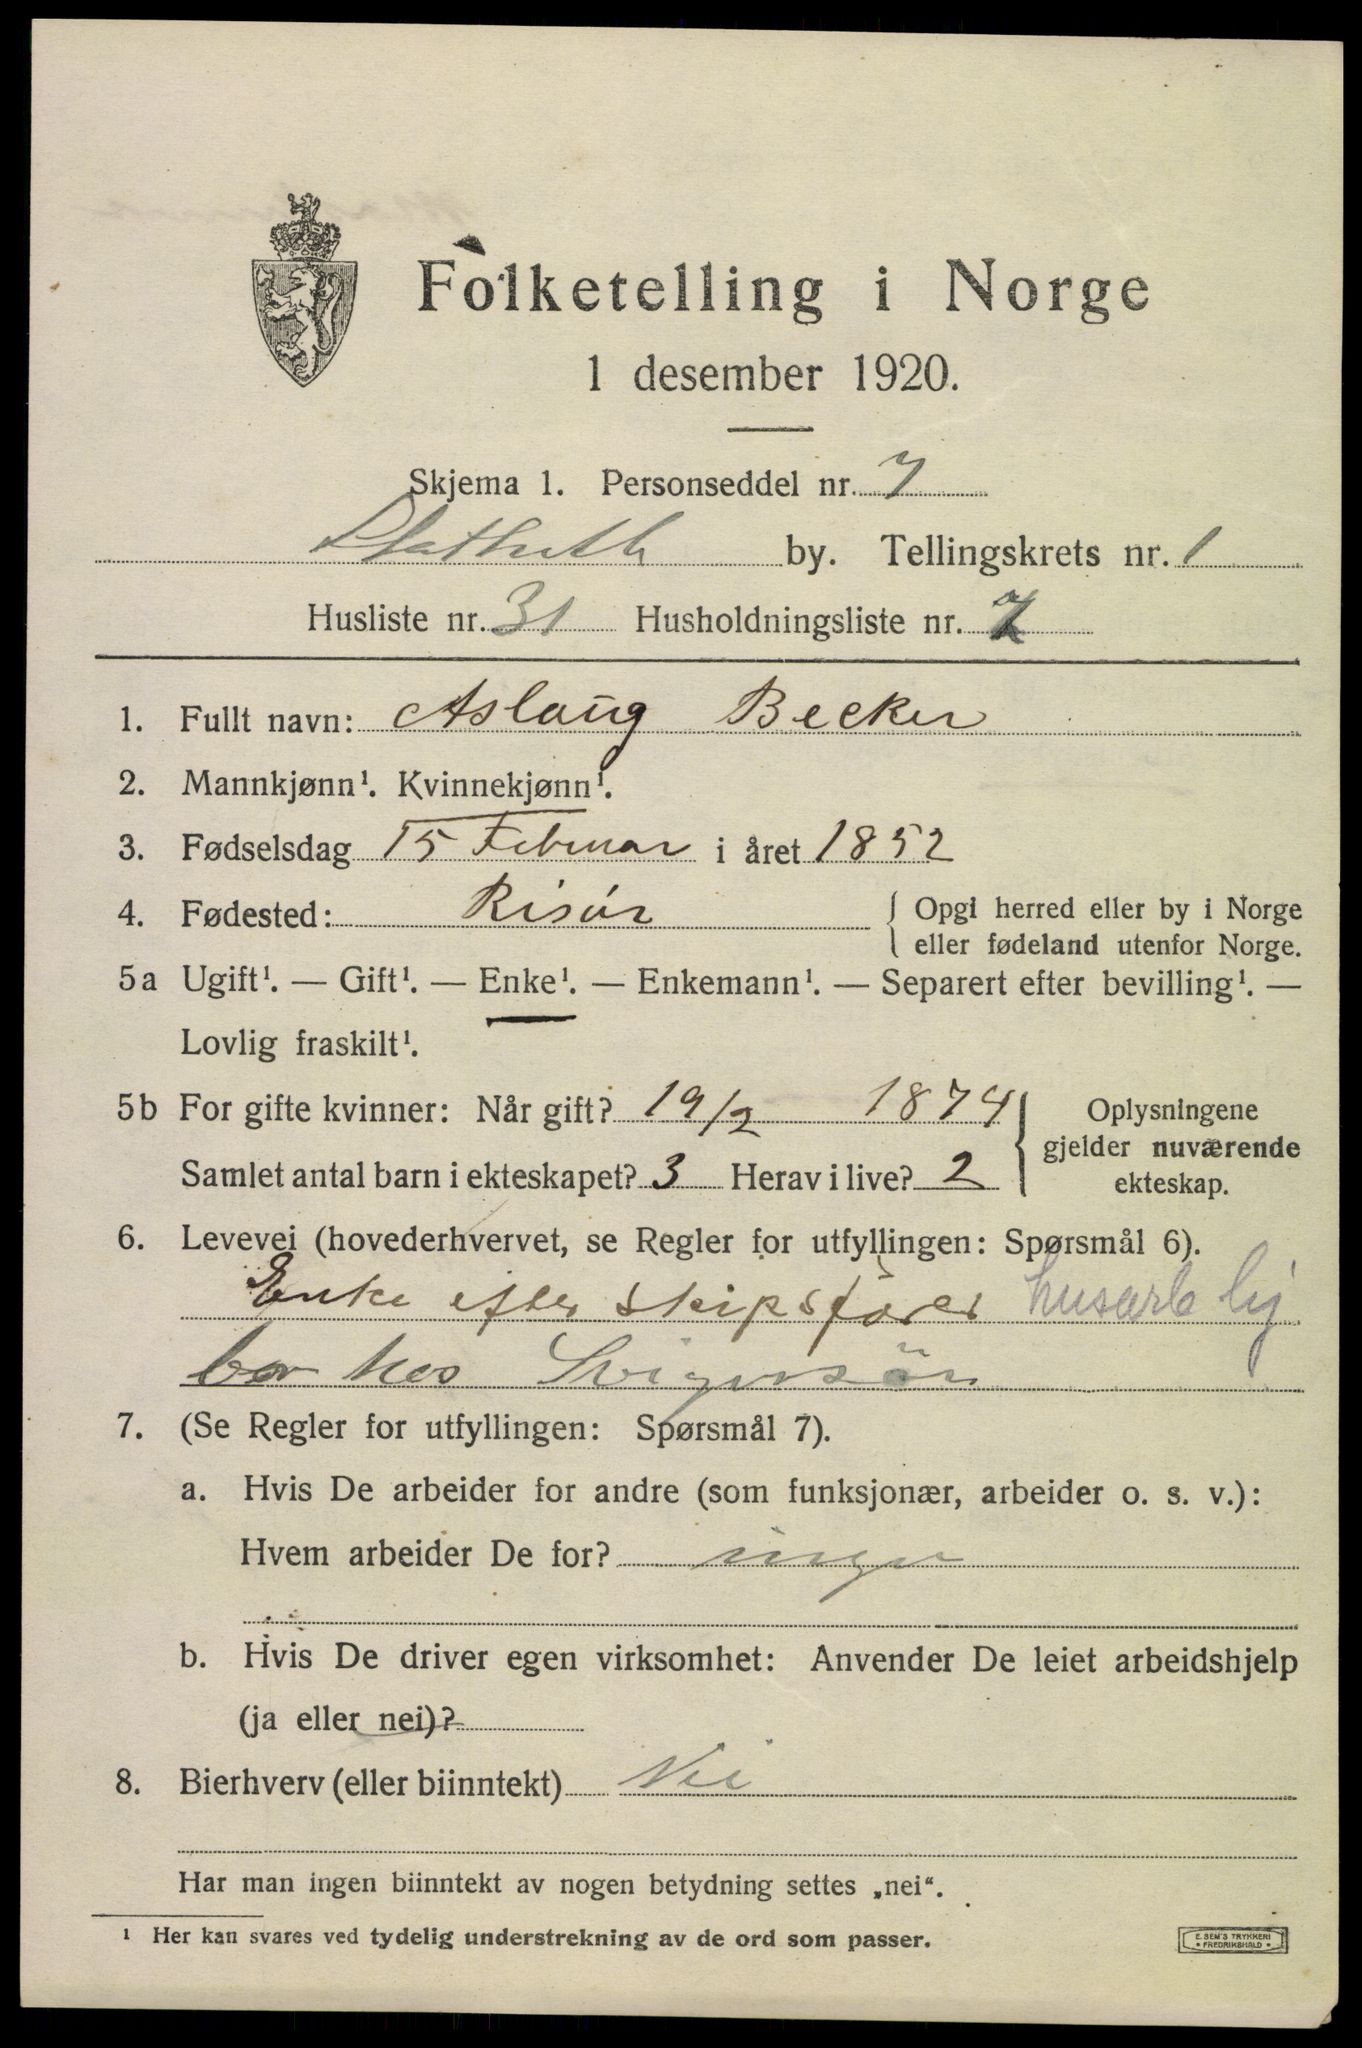 Folketelling i Norge
1 desember 1920.
Skjema 1. Personseddel nr. 7
Stathelle by. Tellingskrets nr. 1
Husliste nr. 31 Husholdningsliste nr. 7
1. Fullt navn: Aslaug Becker
2. Mannkjønn¹. Kvinnekjønn¹.
3. Fødselsdag 15 Februar i året 1852
4. Fødested: Risør { Opgi herred eller by i Norge
eller fødeland utenfor Norge.
5a Ugift¹. — Gift¹. — Enke¹. — Enkemann¹. — Separert efter bevilling¹. —
Lovlig fraskilt¹.
5b For gifte kvinner: Når gift? 19/2 1874 } Oplysningene
gjelder nuværende
Samlet antal barn i ekteskapet? 3 Herav i live? 2 ekteskap.
6. Levevei (hovederhvervet, se Regler for utfyllingen: Spørsmål 6).
Enke efter skipsfører husarb
bor hos Svigersön
7. (Se Regler for utfyllingen: Spørsmål 7).
a. Hvis De arbeider for andre (som funksjonær, arbeider o. s. v.):
Hvem arbeider De for? ingen
b. Hvis De driver egen virksomhet: Anvender De leiet arbeidshjelp
(ja eller nei)?
8. Bierhverv (eller biinntekt) Nei
Har man ingen biinntekt av nogen betydning settes „nei“.
¹ Her kan svares ved tydelig understrekning av de ord som passer.
E. SEM'S TRYKKERI
• FREDRIKSHALD •